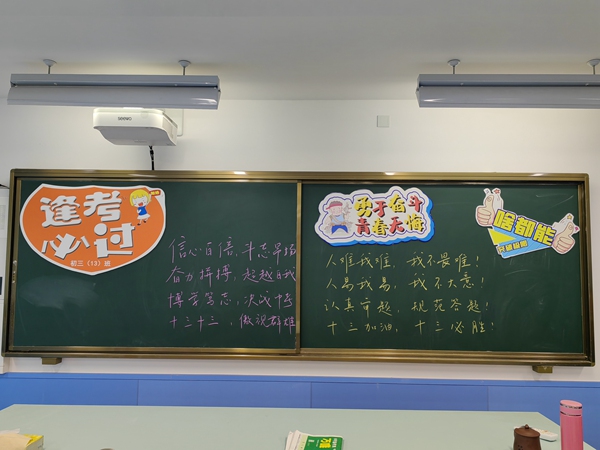 逢考
必过
初三（13）班
信心百倍，斗志昂扬
奋力拼搏，超越自我
博学笃志，决战中考
十三十三，傲视群雄
勇于奋斗
青春无悔
人难我难，我不畏难！
人易我易，我不大意！
认真审题，规范答题！
十三加油，十三必胜！
啥都能